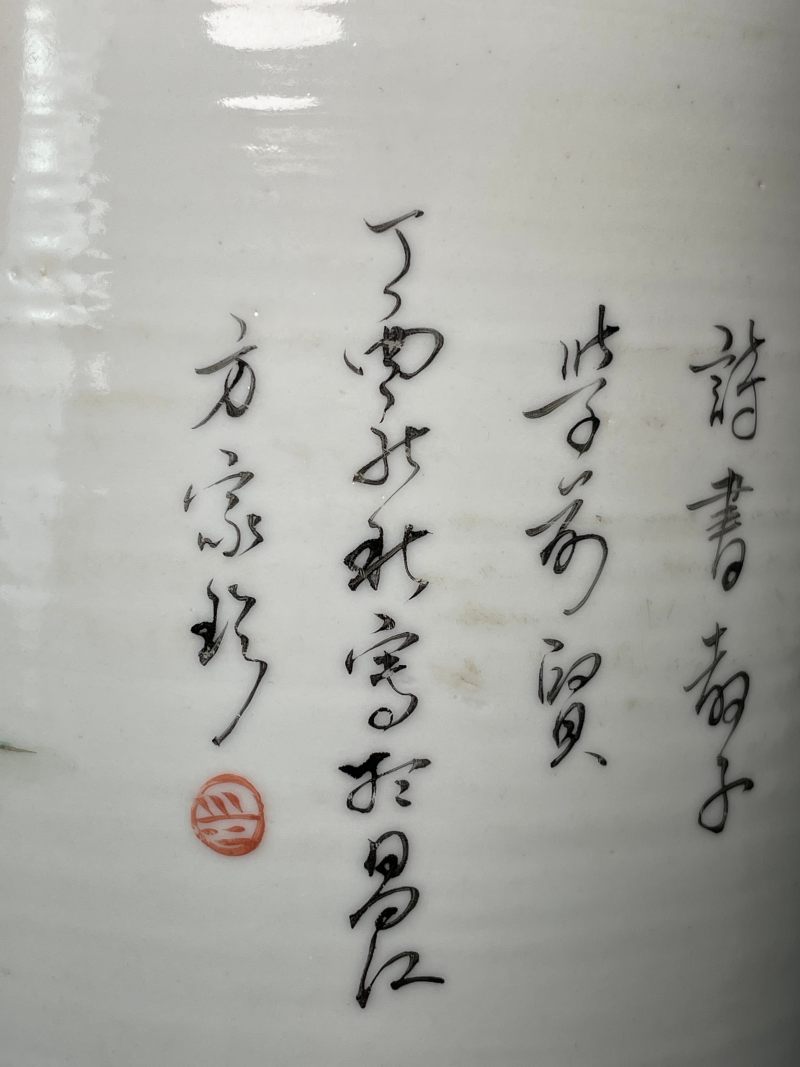 詩書教子
學前賢
丁酉秋寫於昌江
方家珍